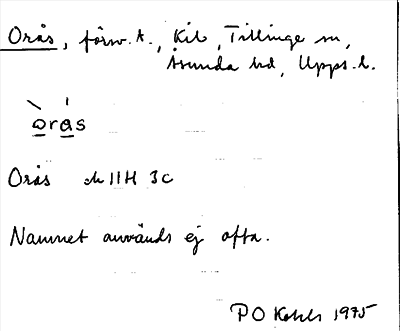 Orås, försv. t., Kil, Tillinge sn,
Åsunda hd, Upps. l.
oras
Orås ek 11H 3c
Namnet används ej ofta.
P O 1975